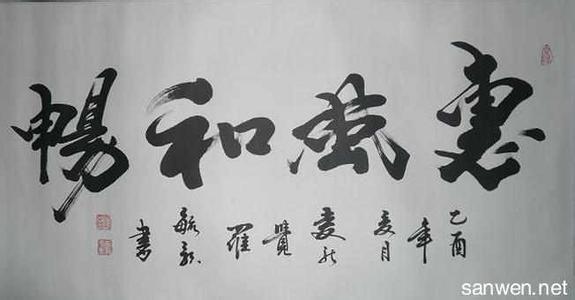 惠風和暢
乙酉年夏月愛新覺羅毓書
sanwen.net